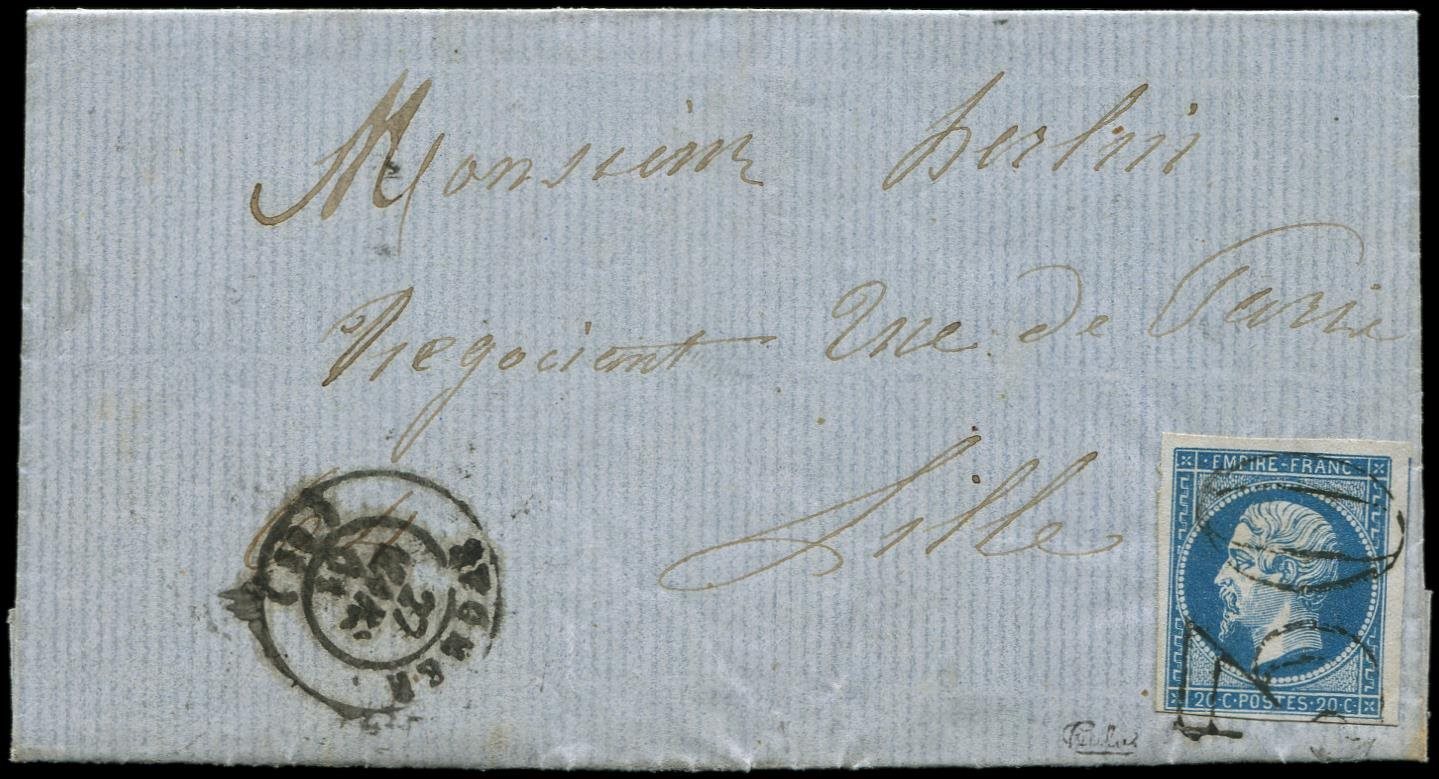 Monsieur herlin
Negociant Rue de Paris
Lille
EMPIRE-FRANC
20·C·POSTES·20·C·